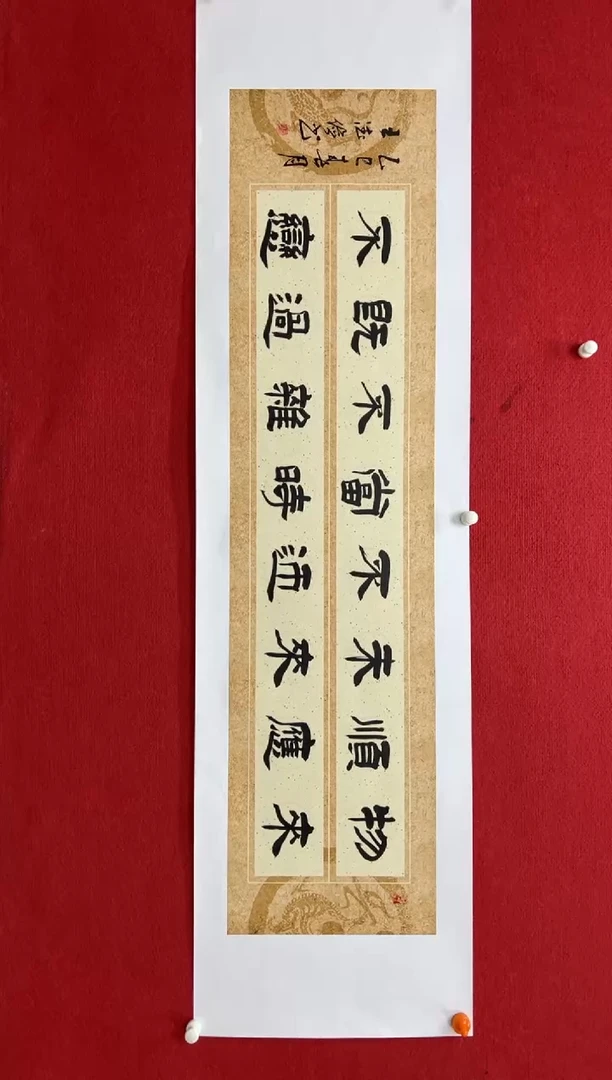 物來
順應
未來
不迎
當時
不雜
既過
不戀
乙巳 月
王法 书